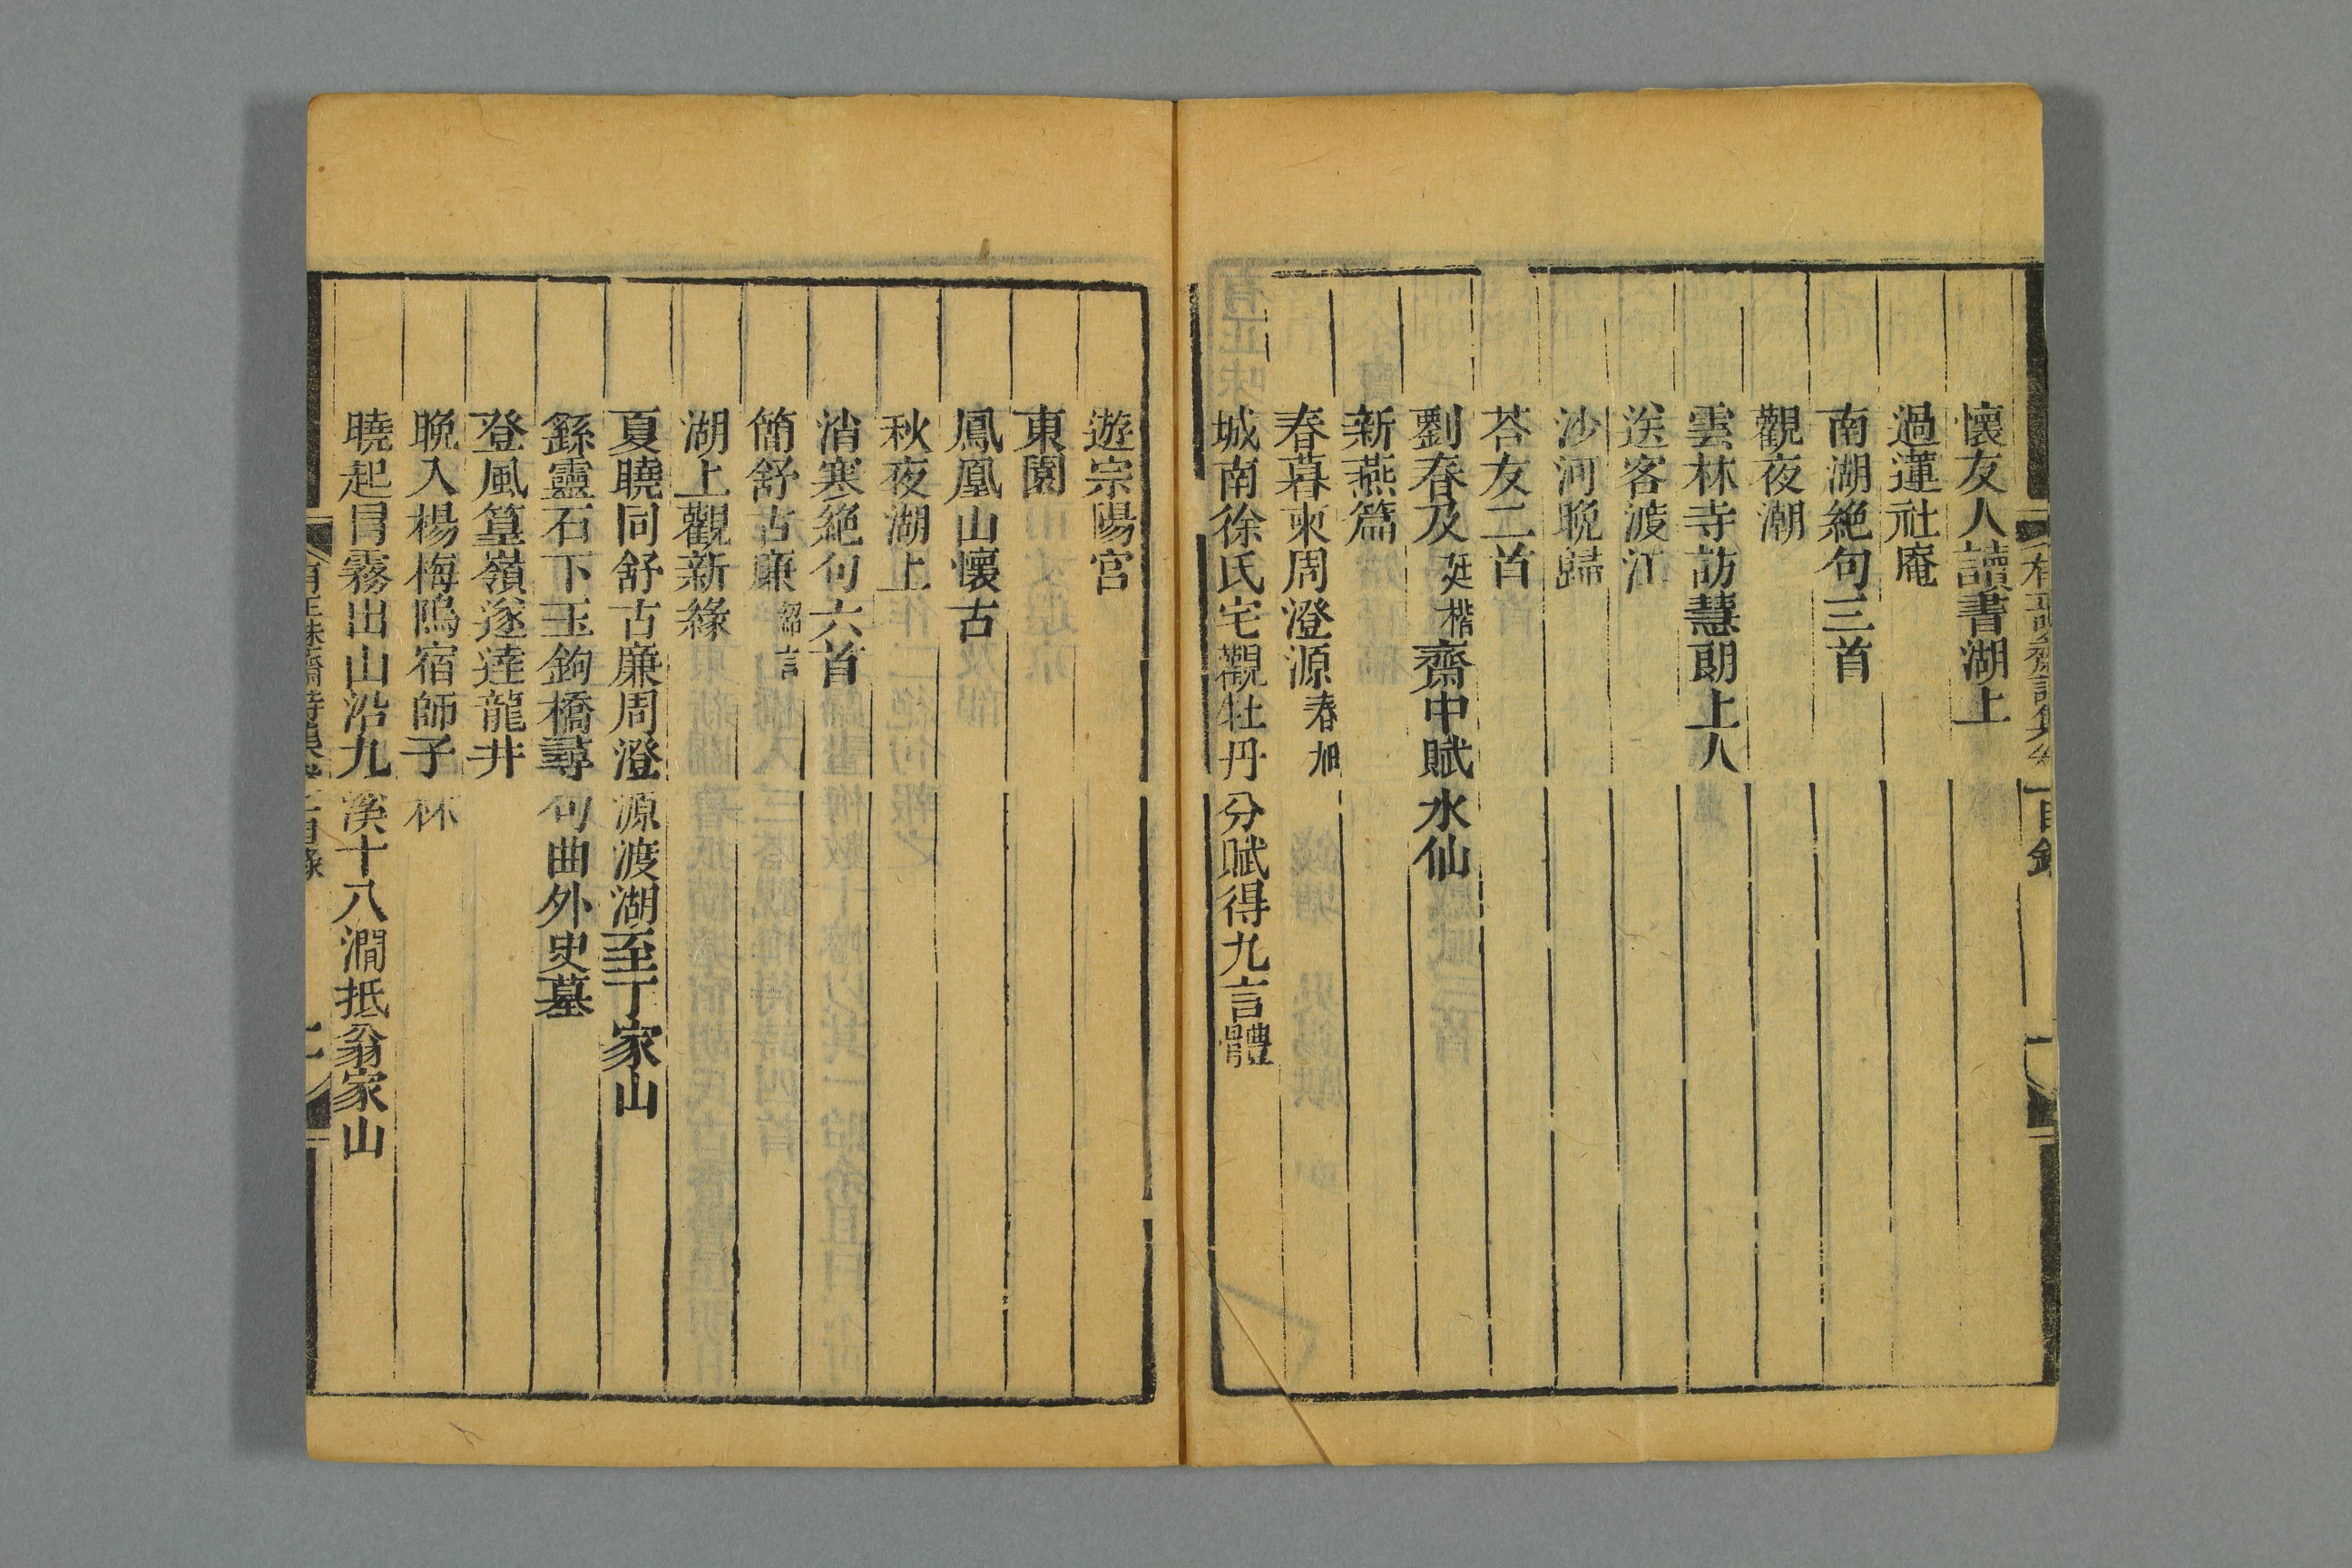 懷友人讀書湖上
過蓮社庵
南湖絶句三首
觀夜潮
雲林寺訪慧朗上人
送客渡江
沙河晩歸
荅友二首
劉春及廷楷齋中賦水仙
新燕篇
春暮柬周澄源春旭
城南徐氏宅觀牡丹分賦得九言體
遊宗陽宮
東園
鳳凰山懷古
秋夜湖上
消寒絶句六首
簡舒古廉紹言
湖上觀新綠
夏曉同舒古廉周澄源渡湖至丁家山
繇靈石下玉鉤橋尋句曲外史墓
登風篁嶺遂達龍井
晩入楊梅塢宿師子林
曉起冐霧出山沿九溪十八澗抵翁家山